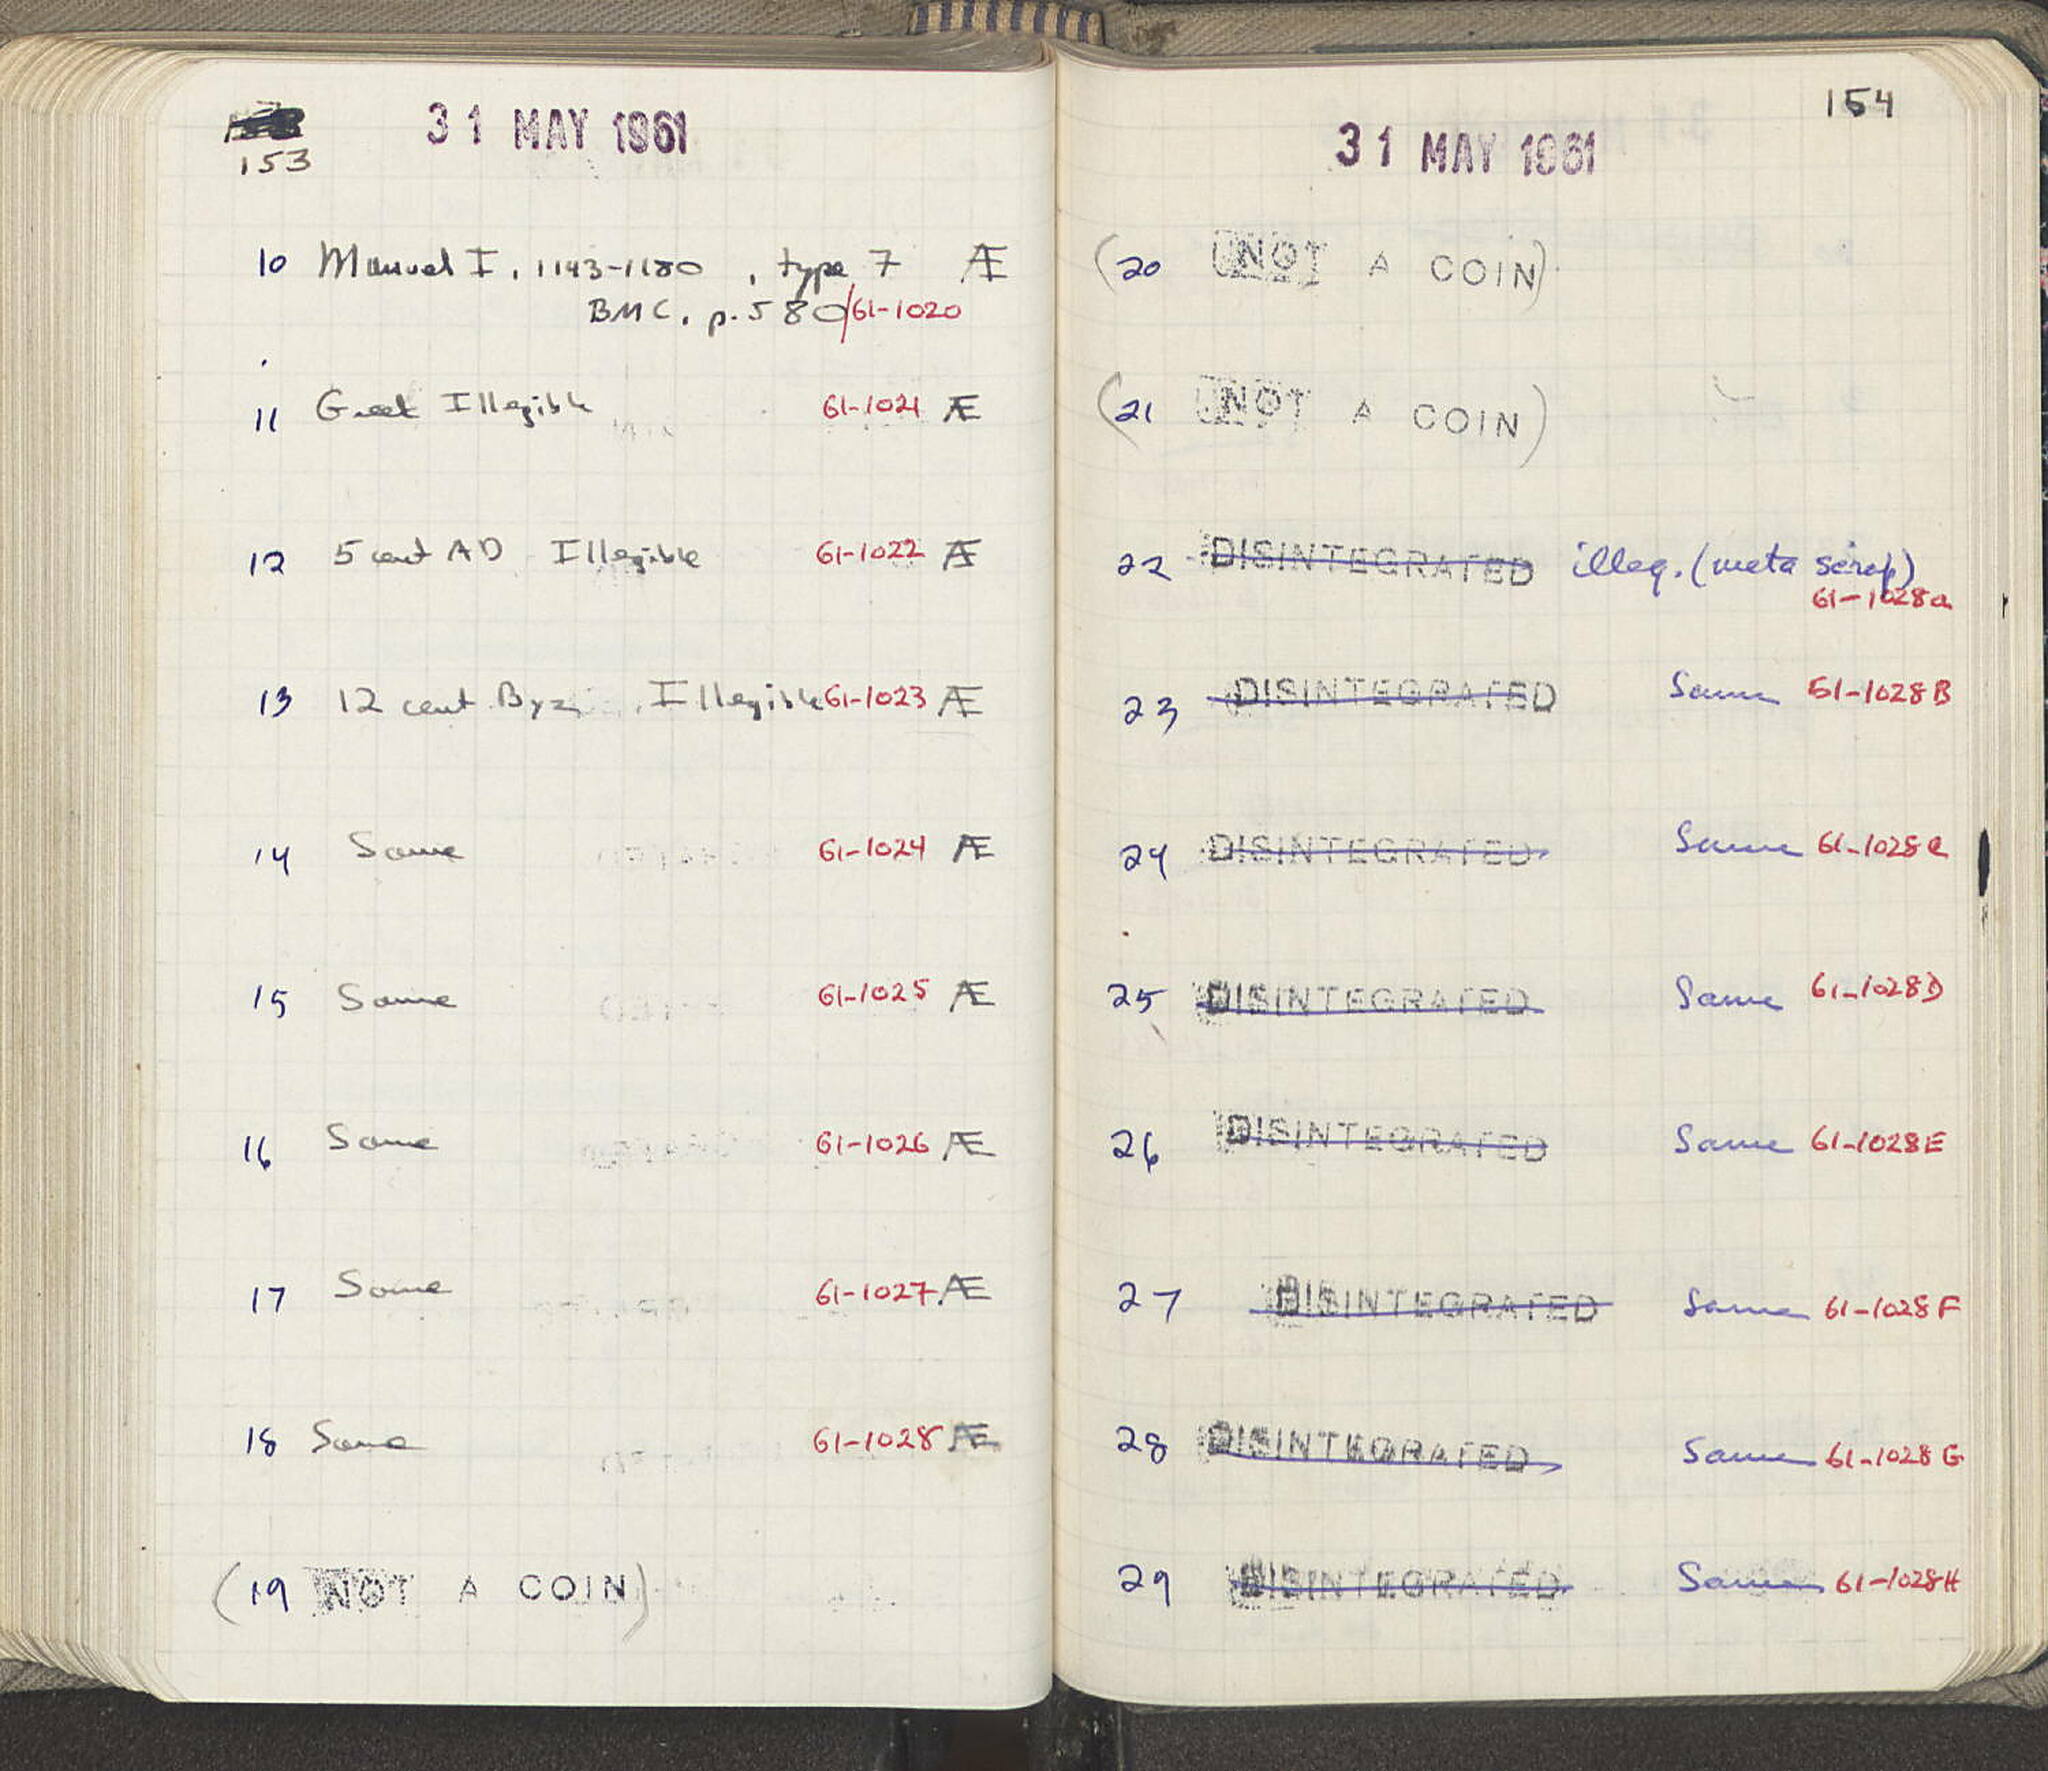 153
31 MAY 1961
10 Manuel I, 1143-1180, type 7 Æ
BMC, p. 580/61-1020
11 Greek Illegible 61-1021 Æ
12 5 cent AD Illegible 61-1022 Æ
13 12 cent Byz, Illegible 61-1023 Æ
14 Same 61-1024 Æ
15 Same 61-1025 Æ
16 Same 61-1026 Æ
17 Same 61-1027 Æ
18 Same 61-1028 Æ
(19 NOT A COIN)
154
31 MAY 1961
(20 NOT A COIN)
(21 NOT A COIN)
22 DISINTEGRATED illeg. (meta scrap)
61-1028a
23 DISINTEGRATED Same 61-1028B
24 DISINTEGRATED Same 61-1028C
25 DISINTEGRATED Same 61-1028D
26 DISINTEGRATED Same 61-1028E
27 DISINTEGRATED Same 61-1028F
28 DISINTEGRATED Same 61-1028G
29 DISINTEGRATED Same 61-1028H